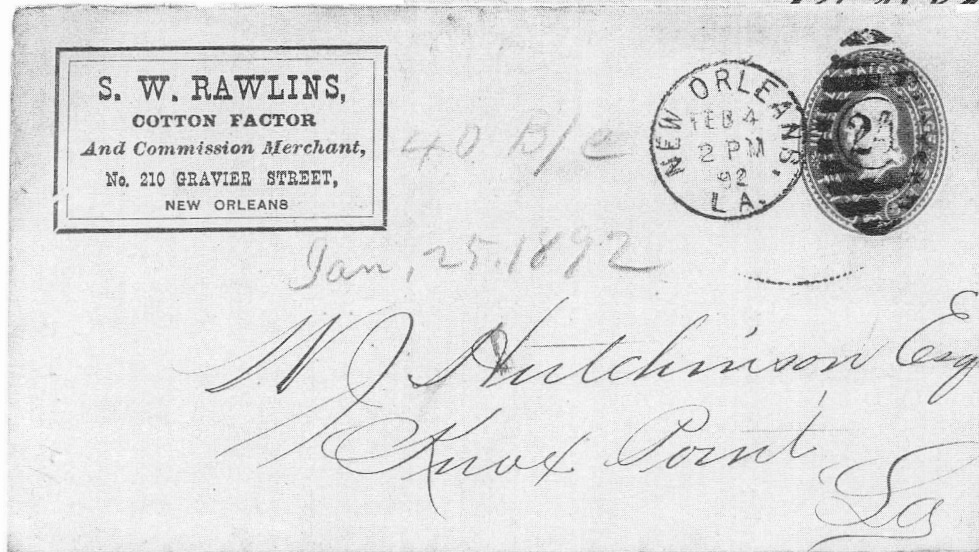 S. W. RAWLINS,
COTTON FACTOR
And Commission Merchant,
No. 210 GRAVIER STREET,
NEW ORLEANS
40 B/c
NEW ORLEANS,
FEB 4
2 PM
92
LA.
24
Jan, 25. 1892
W J Hutchinson Esq
Knox Point
La